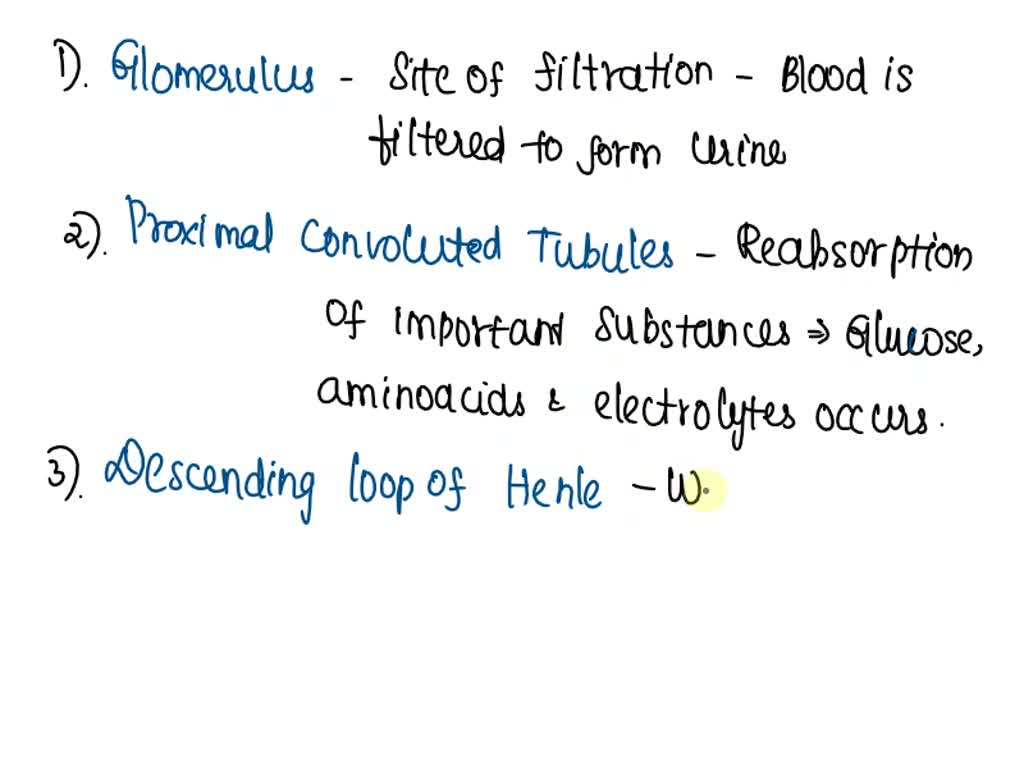 1). Glomerulus - Site of filtration - Blood is
filtered to form Urine
2). Proximal Convoluted Tubules - Reabsorption
Of important Substances ⇒ Glucose,
aminoacids & electrolytes occurs.
3). Descending loop of Henle - W